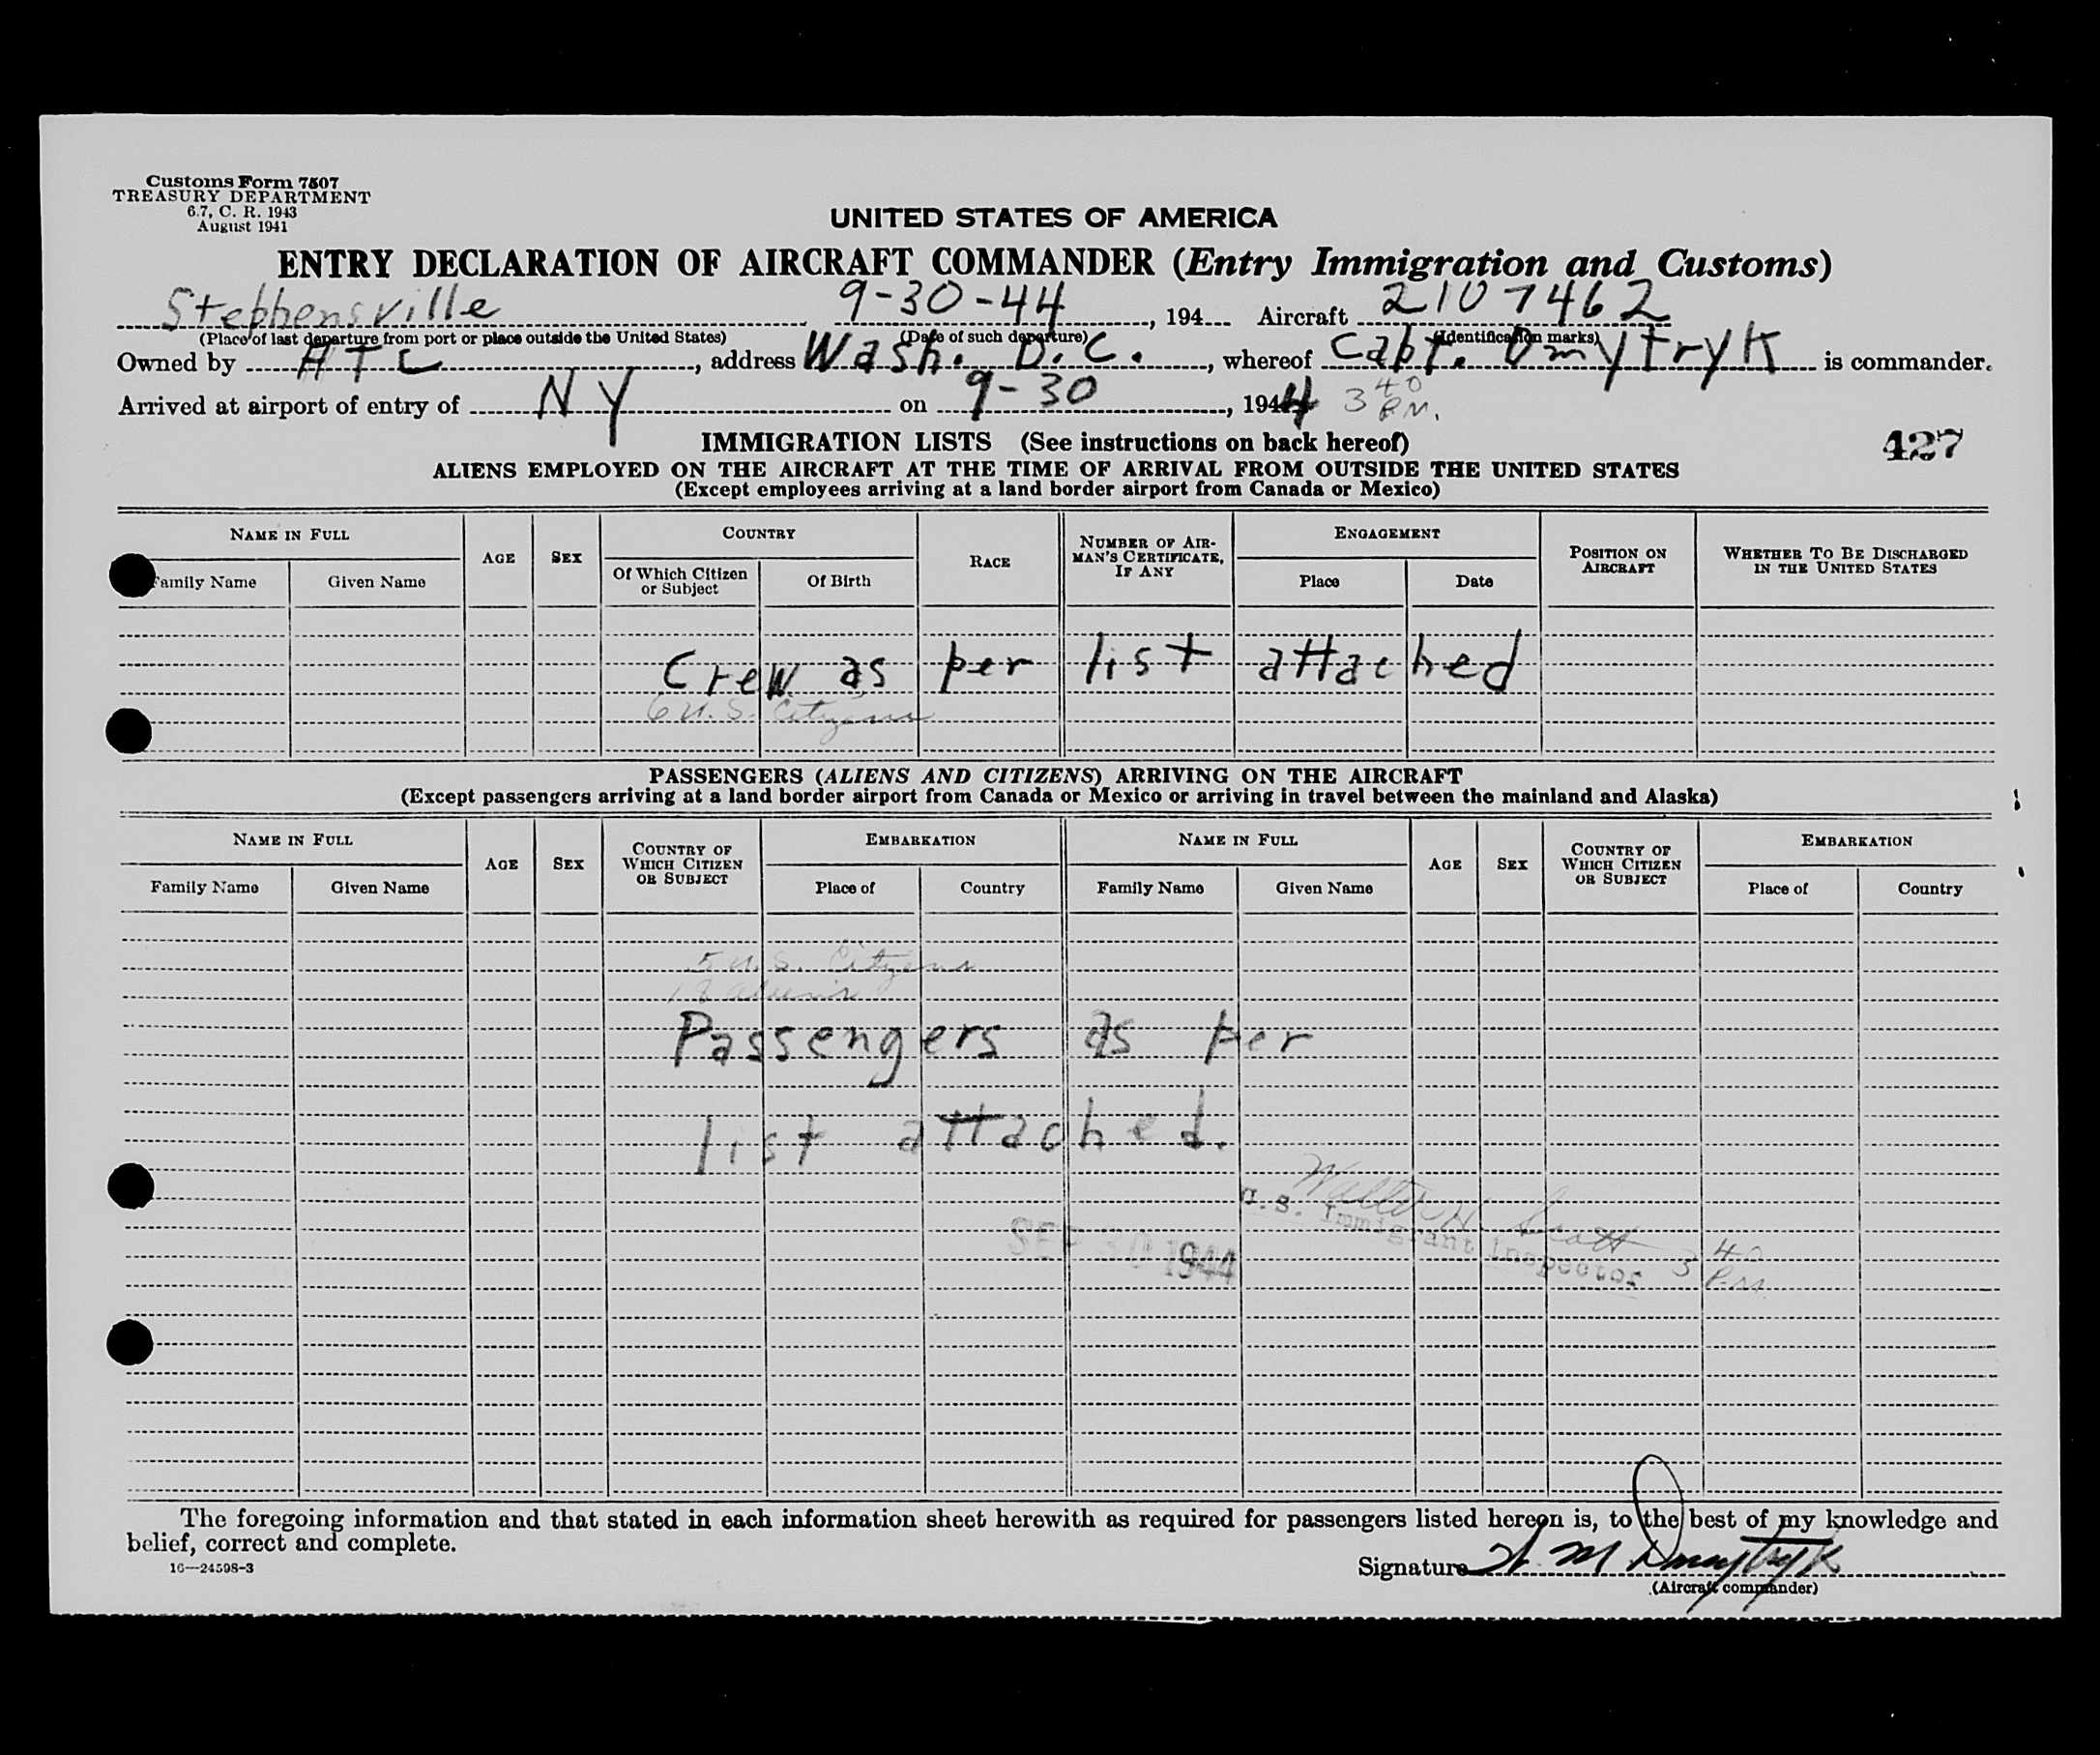 Customs Form 7507
TREASURY DEPARTMENT
6.7, C. R. 1943
August 1941
UNITED STATES OF AMERICA
ENTRY DECLARATION OF AIRCRAFT COMMANDER (Entry Immigration and Customs)
Stephensville, 9-30-44, 194 Aircraft 2107462
(Place of last departure from port or place outside the United States) (Date of such departure) (Identification marks)
Owned by ATC, address Wash. D.C., whereof Capt. Dmytryk is commander.
Arrived at airport of entry of NY on 9-30, 1944 3 40 P.M.
IMMIGRATION LISTS (See instructions on back hereof)
427
ALIENS EMPLOYED ON THE AIRCRAFT AT THE TIME OF ARRIVAL FROM OUTSIDE THE UNITED STATES
(Except employees arriving at a land border airport from Canada or Mexico)
NAME IN FULL
Family Name
Given Name
AGE
SEX
COUNTRY
Of Which Citizen or Subject
Of Birth
RACE
NUMBER OF AIRMAN'S CERTIFICATE, IF ANY
ENGAGEMENT
Place
Date
POSITION ON AIRCRAFT
WHETHER TO BE DISCHARGED IN THE UNITED STATES
Crew as per list attached
6 U.S. Citizens
PASSENGERS (ALIENS AND CITIZENS) ARRIVING ON THE AIRCRAFT
(Except passengers arriving at a land border airport from Canada or Mexico or arriving in travel between the mainland and Alaska)
NAME IN FULL
Family Name
Given Name
AGE
SEX
COUNTRY OF WHICH CITIZEN OR SUBJECT
EMBARKATION
Place of
Country
NAME IN FULL
Family Name
Given Name
AGE
SEX
COUNTRY OF WHICH CITIZEN OR SUBJECT
EMBARKATION
Place of
Country
5 U.S. Citizens
18 aliens
Passengers as per
list attached.
Walter H Scott
U.S. Immigrant Inspector 3 40 P.M.
SEP 30 1944
The foregoing information and that stated in each information sheet herewith as required for passengers listed hereon is, to the best of my knowledge and
belief, correct and complete.
16—24598-3
Signature W M Dmytryk
(Aircraft commander)